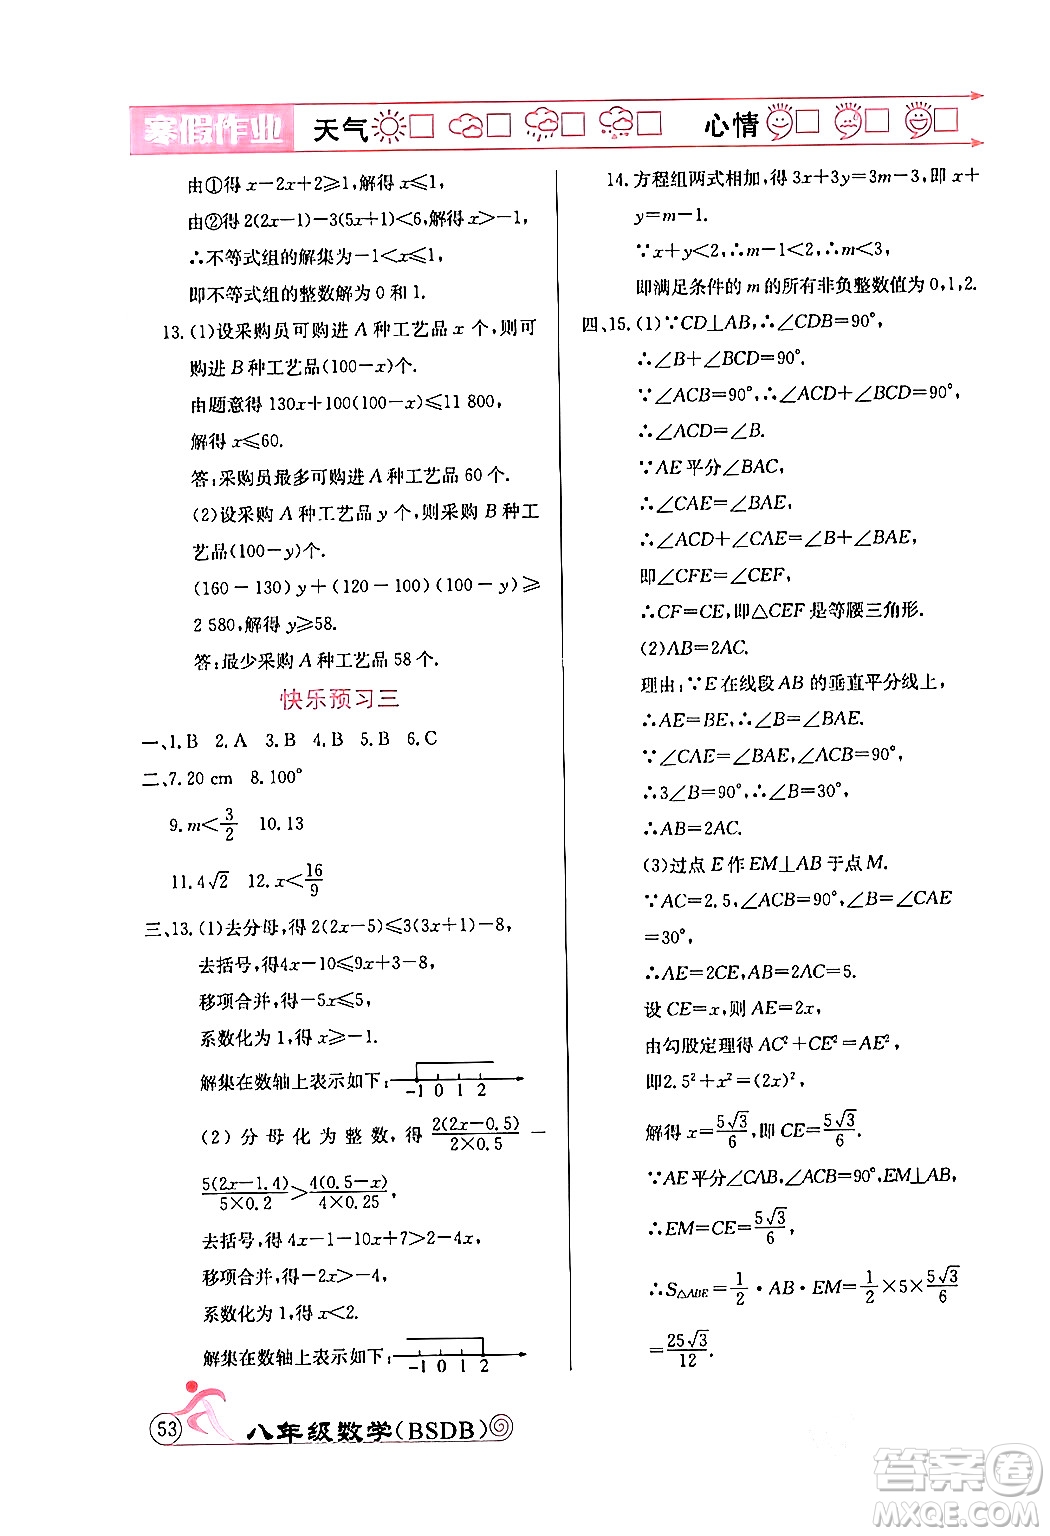 寒假作业 天气 心情
由①得 x-2x+2⩾1,解得 x⩽1,
由②得 2(2x-1)-3(5x+1)<6,解得 x>-1,
∴不等式组的解集为-1<x⩽1,
即不等式组的整数解为 0 和 1.
13. (1)设采购员可购进 A 种工艺品 x 个,则可
购进 B 种工艺品(100-x)个.
由题意得 130x+100(100-x)⩽11 800,
解得 x⩽60.
答:采购员最多可购进 A 种工艺品 60 个.
(2)设采购 A 种工艺品 y 个,则采购 B 种工
艺品(100-y)个.
(160-130)y+(120-100)(100-y)⩾
2 580,解得 y⩾58.
答:最少采购 A 种工艺品 58 个.
快乐预习三
一、1. B 2. A 3. B 4. B 5. B 6. C
二、7. 20 cm 8. 100°
9. m<3/2 10. 13
11. 4√2 12. x<16/9
三、13. (1)去分母,得 2(2x-5)⩽3(3x+1)-8,
去括号,得4x-10⩽9x+3-8,
移项合并,得-5x⩽5,
系数化为 1,得 x⩾-1.
解集在数轴上表示如下: -1 0 1 2
(2)分母化为整数,得 2(2x-0.5)/2×0.5 -
5(2x-1.4)/5×0.2 > 4(0.5-x)/4×0.25,
去括号,得 4x-1-10x+7>2-4x,
移项合并,得-2x>-4,
系数化为 1,得 x<2.
解集在数轴上表示如下: -1 0 1 2
14. 方程组两式相加,得 3x+3y=3m-3,即 x+
y=m-1.
∵x+y<2,∴m-1<2,∴m<3,
即满足条件的 m 的所有非负整数值为 0,1,2.
四、15. (1)∵CD⊥AB,∴∠CDB=90°,
∴∠B+∠BCD=90°.
∵∠ACB=90°,∴∠ACD+∠BCD=90°,
∴∠ACD=∠B.
∵AE平分∠BAC,
∴∠CAE=∠BAE,
∴∠ACD+∠CAE=∠B+∠BAE,
即∠CFE=∠CEF,
∴CF=CE,即△CEF 是等腰三角形.
(2)AB=2AC.
理由:∵E在线段 AB 的垂直平分线上,
∴AE=BE,∴∠B=∠BAE.
∵∠CAE=∠BAE,∴∠CAE=∠B,
∴3∠B=90°,∴∠B=30°,
∴AB=2AC.
(3)过点 E 作 EM⊥AB 于点 M.
∵AC=2.5,∠ACB=90°,∠B=∠CAE
=30°,
∴AE=2CE,AB=2AC=5.
设 CE=x,则 AE=2x,
由勾股定理得 AC²+CE²=AE²,
即2.5²+x²=(2x)²,
解得 x=5√3/6,即 CE=5√3/6.
∵AE平分∠CAB,∠ACB=90°,EM⊥AB,
∴EM=CE=5√3/6,
∴S△ABE=1/2·AB·EM=1/2×5×5√3/6
=25√3/12.
53 八年级数学(BSDB)
答案卷
MXQE.COM